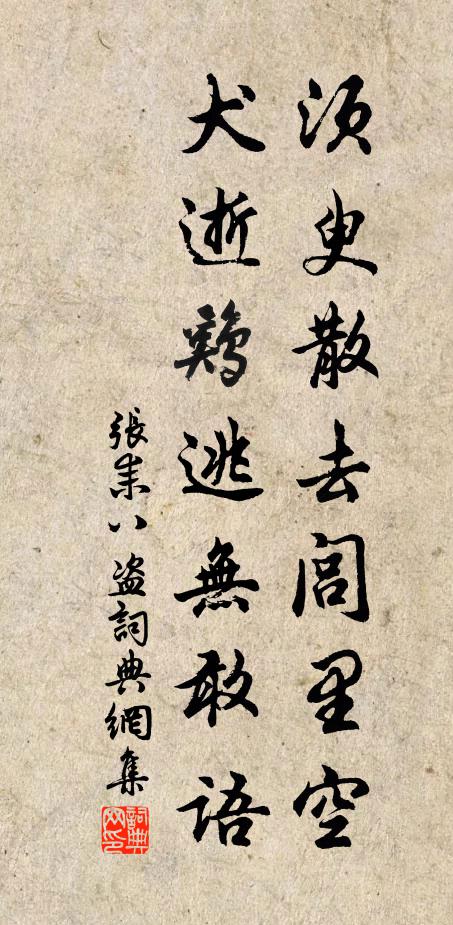 須臾散去閭里空
犬逝鷄逃無敢語
張耒八盗詞典網集
詞典网印